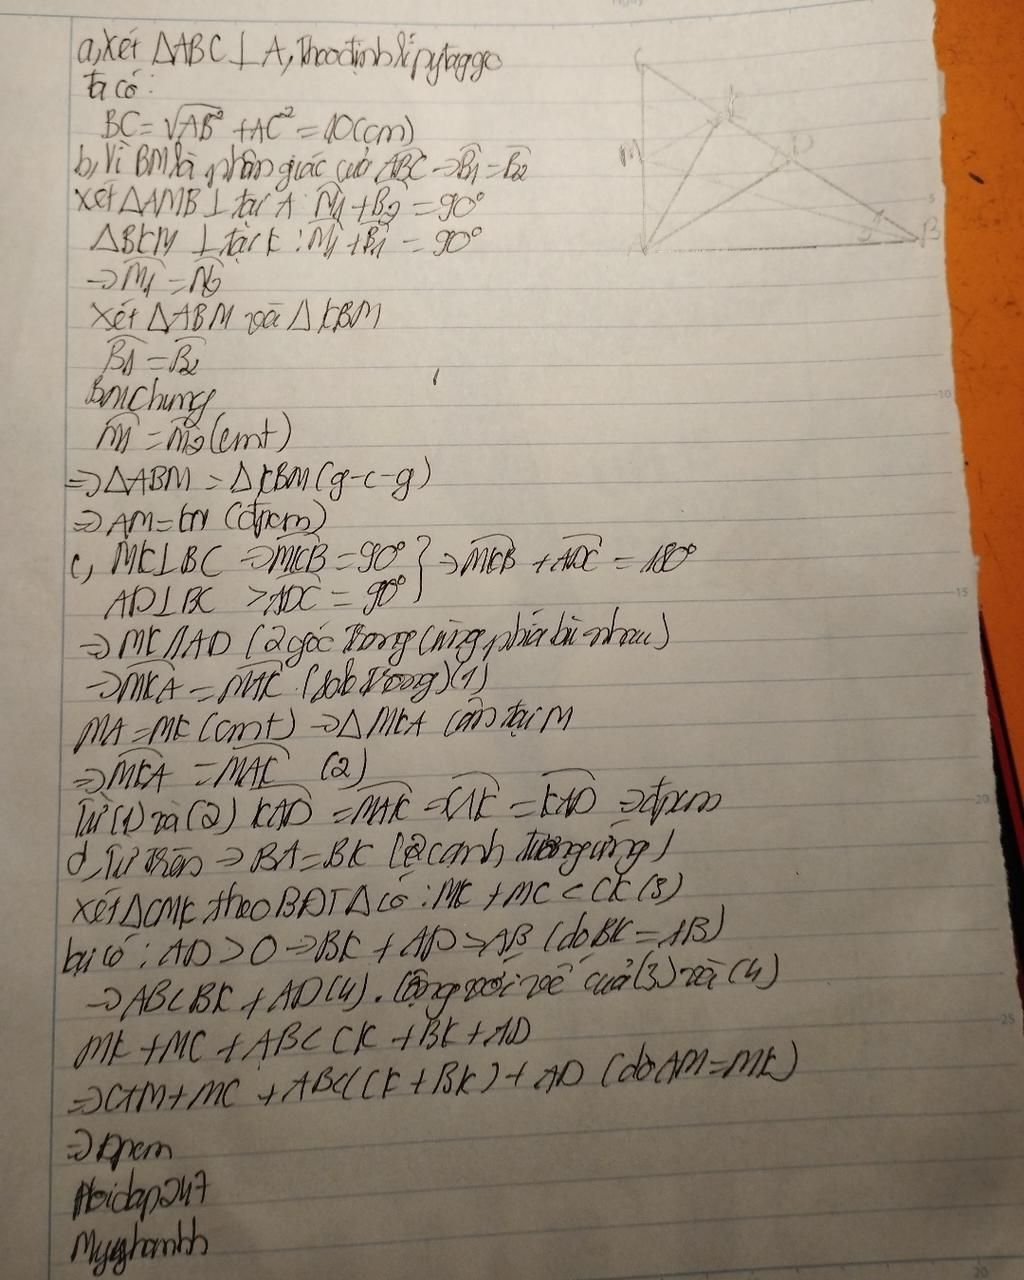 a, Xét ΔABC ⊥ A, Theo định lí pytaggo
ta có:
BC = √AB² + AC² = 10(cm)
b, Vì BM là phân giác của ABC ⇒ B1 = B2
Xét ΔAMB ⊥ tại A: M1 + B2 = 90°
ΔBKM ⊥ tại K: M1 + B1 = 90°
⇒ M1 = M2
Xét ΔABM và ΔKBM
B1 = B2
BM chung
M1 = M2 (cmt)
⇒ ΔABM = ΔKBM (g-c-g)
⇒ AM = KM (đpcm)
c, MK ⊥ BC ⇒ MKB = 90° } ⇒ MKB + ADC = 180°
AD ⊥ BC > ADC = 90°
⇒ MK // AD (2 góc trong cùng phía bù nhau)
⇒ MKA = MAK (so le trong) (1)
MA = MK (cmt) ⇒ ΔMKA cân tại M
⇒ MKA = MAK (2)
Từ (1) và (2) KAD = MAK = CAK = KAD ⇒ đpcm
d, Từ trên ⇒ BA = BK (2 cạnh tương ứng)
Xét ΔCMK theo BĐT Δ có: MK + MC < CK (3)
lại có: AD > 0 ⇒ BK + AD > AB (do BK = AB)
⇒ AB < BK + AD (4). Cộng với vế của (3) và (4)
MK + MC + AB < CK + BK + AD
⇒ CAM + MC + AB < (CK + BK) + AD (do AM = MK)
⇒ Đpcm
Hoidap247
C
K
M
D
B